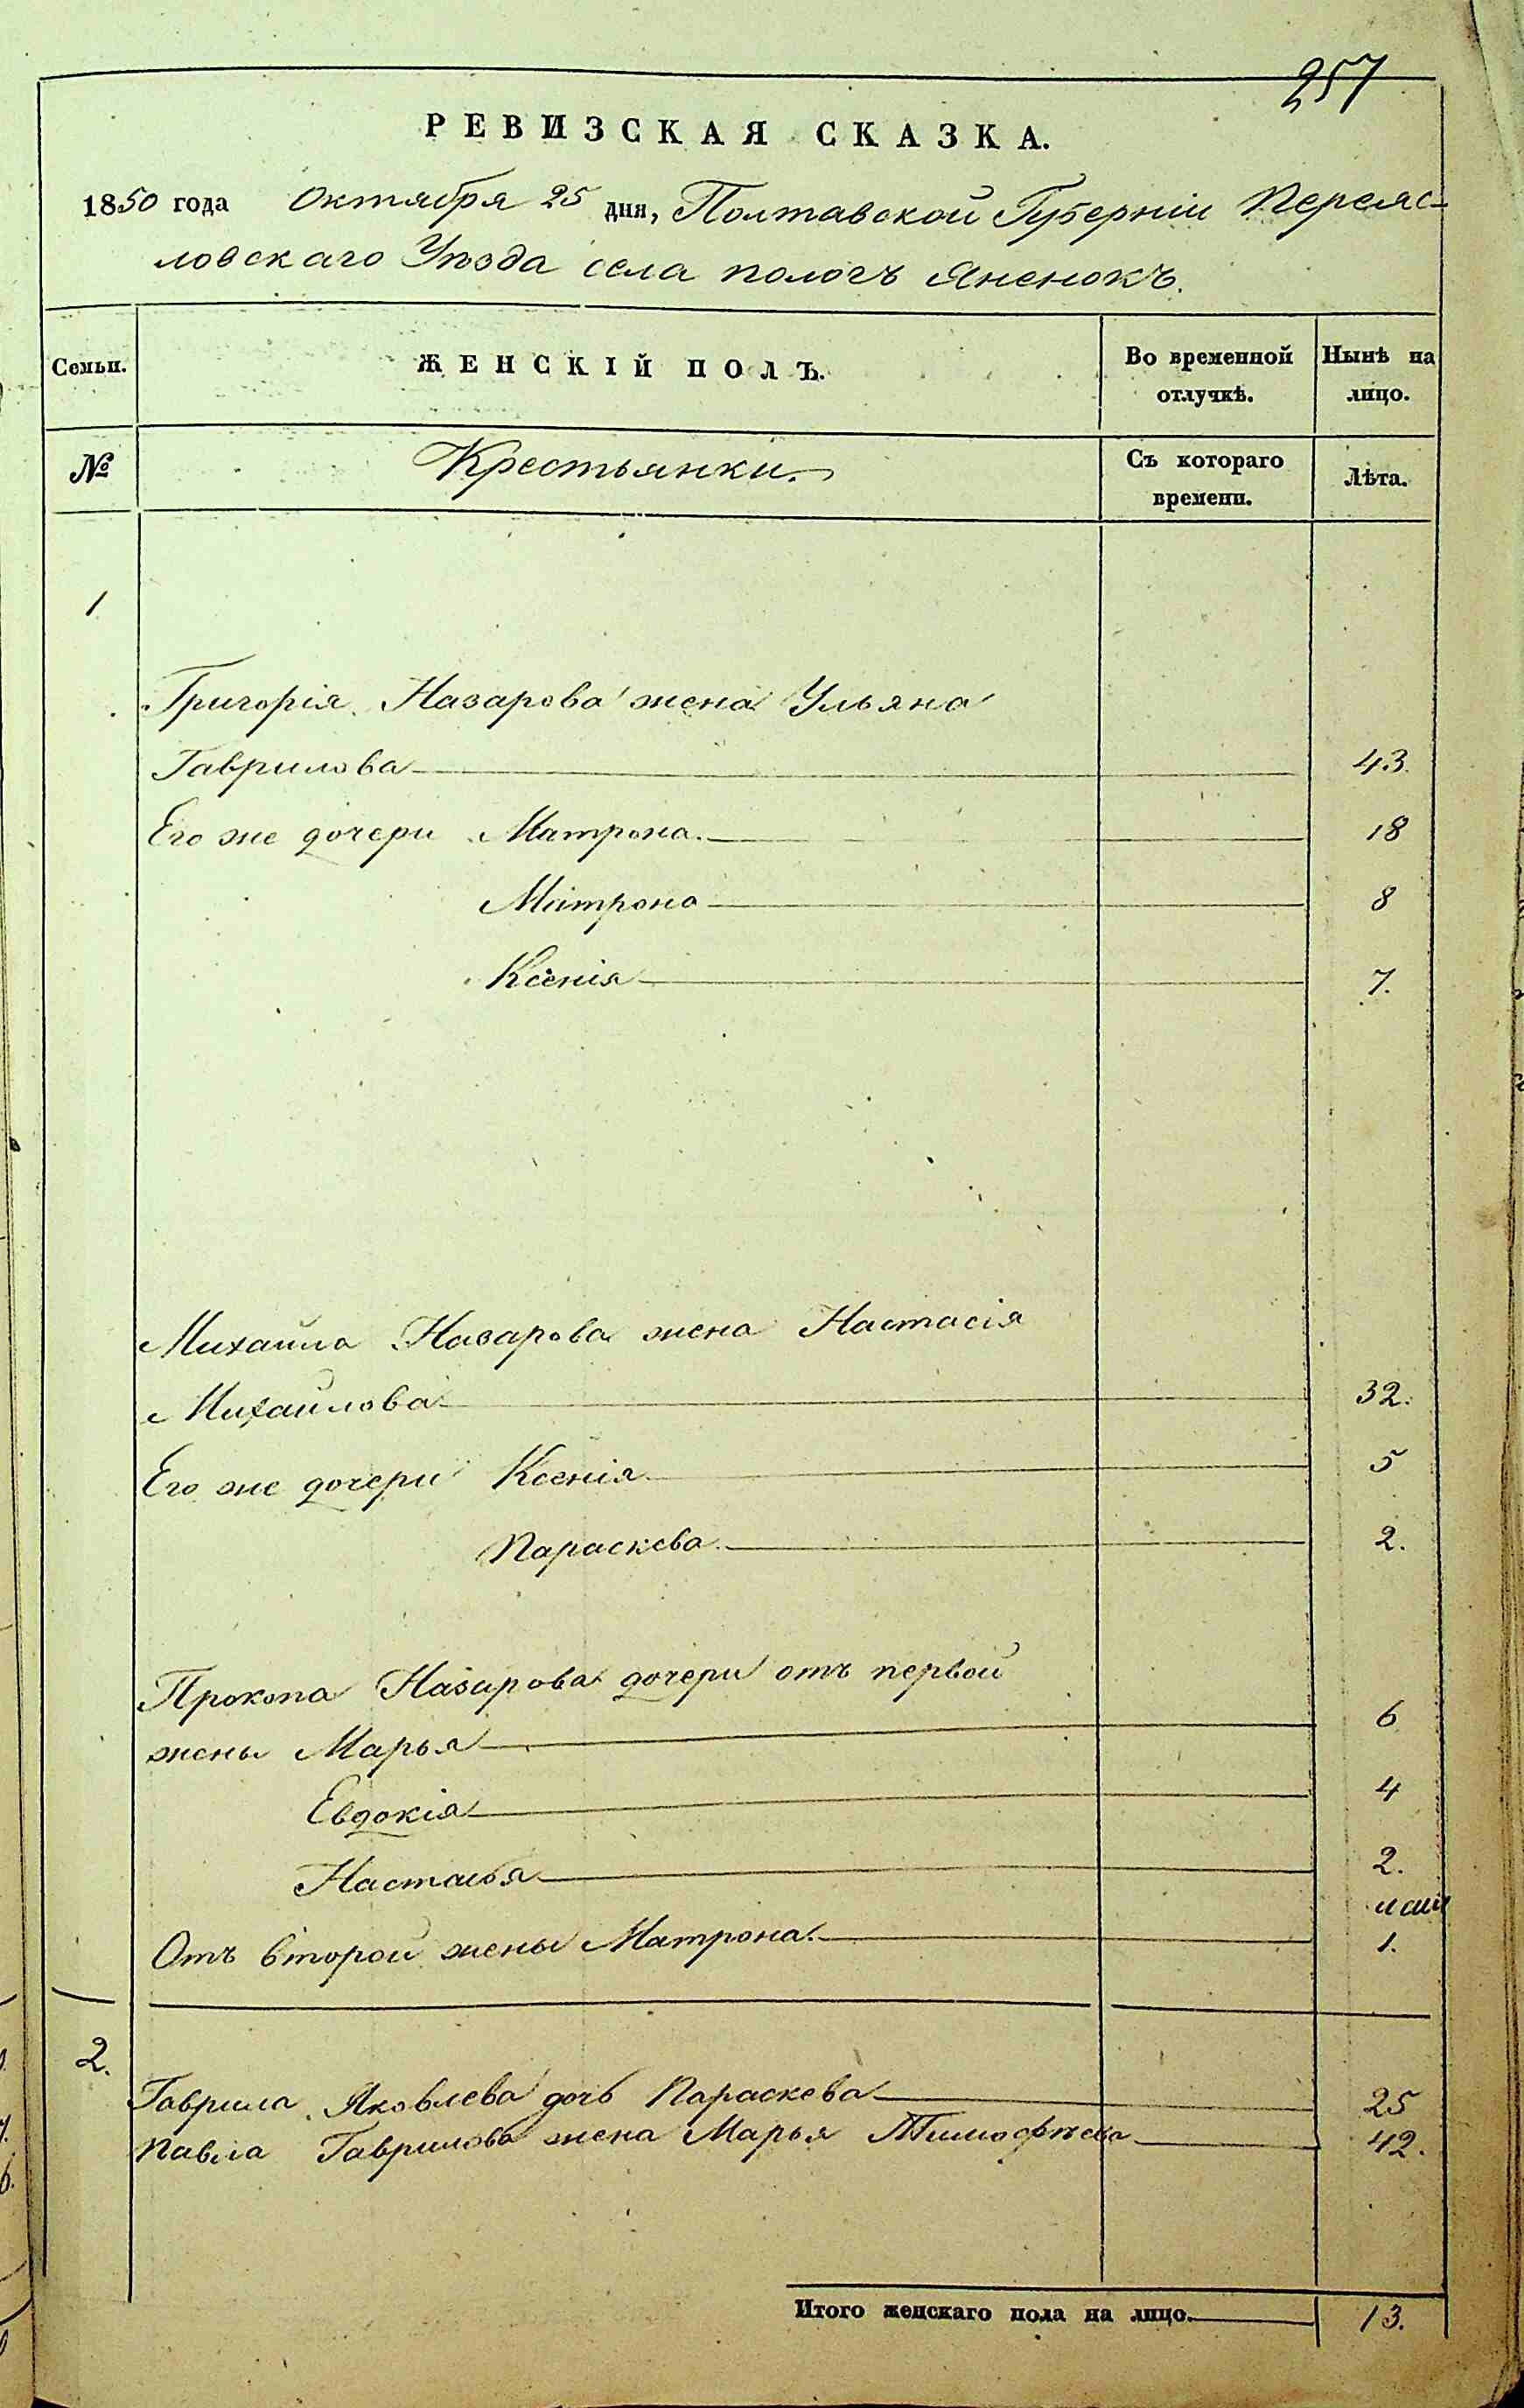 257
РЕВИЗСКАЯ СКАЗКА.
1850 года Октября 25 дня, Полтавской Губерніи Переяс-
ловскаго Уѣзда села пологъ Яненокъ.
Семьи.
ЖЕНСКІЙ ПОЛЪ.
Во временной отлучкѣ.
Нынѣ на лицо.
№
Крестьянки.
Съ котораго времени.
Лѣта.
1
Григорія Назарова жена Ульяна
Гаврилова 43.
Его же дочери Матрона. 18
Матрона 8
Ксенія 7.
Михайла Назарова жена Настасія
Михайлова 32.
Его же дочери Ксенія 5
Параскева. 2.
Прокопа Назарова дочери отъ первой
жены Марья 6
Евдокія 4
Настасья 2.
Отъ второй жены Матрона. 1.
2.
Гаврила Яковлева дочь Параскева 25
Павла Гаврилова жена Марья Тимофѣева 42.
Итого женскаго пола на лицо. 13.